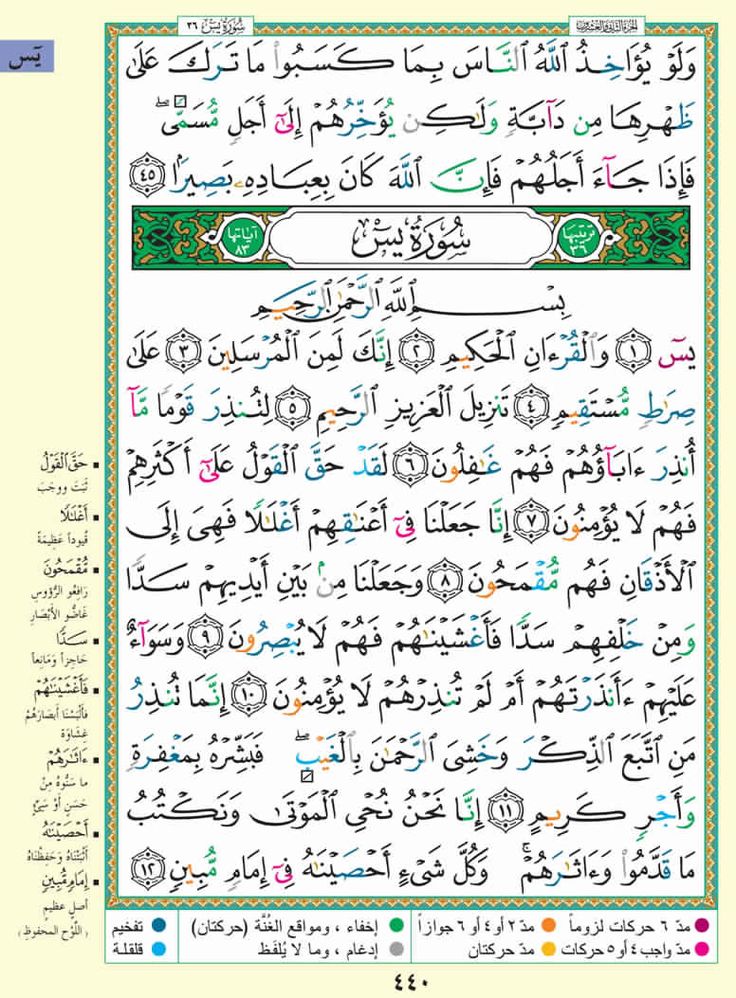 سُورَةُ يسٓ ٣٦
الجزء الثاني والعشرون
يسٓ
وَلَوْ يُؤَاخِذُ اللَّهُ النَّاسَ بِمَا كَسَبُوا مَا تَرَكَ عَلَىٰ
ظَهْرِهَا مِن دَآبَّةٍ وَلَٰكِن يُؤَخِّرُهُمْ إِلَىٰٓ أَجَلٍ مُّسَمًّى ۖ
فَإِذَا جَآءَ أَجَلُهُمْ فَإِنَّ اللَّهَ كَانَ بِعِبَادِهِۦ بَصِيرًۢا ٤٥
ترتيبها ٣٦
سُورَةُ يسٓ
آياتها ٨٣
بِسْمِ اللَّهِ الرَّحْمَٰنِ الرَّحِيمِ
يسٓ ١ وَالْقُرْءَانِ الْحَكِيمِ ٢ إِنَّكَ لَمِنَ الْمُرْسَلِينَ ٣ عَلَىٰ
صِرَٰطٍ مُّسْتَقِيمٍ ٤ تَنزِيلَ الْعَزِيزِ الرَّحِيمِ ٥ لِتُنذِرَ قَوْمًا مَّآ
أُنذِرَ ءَابَآؤُهُمْ فَهُمْ غَٰفِلُونَ ٦ لَقَدْ حَقَّ الْقَوْلُ عَلَىٰٓ أَكْثَرِهِمْ
فَهُمْ لَا يُؤْمِنُونَ ٧ إِنَّا جَعَلْنَا فِىٓ أَعْنَٰقِهِمْ أَغْلَٰلًا فَهِىَ إِلَى
الْأَذْقَانِ فَهُم مُّقْمَحُونَ ٨ وَجَعَلْنَا مِنۢ بَيْنِ أَيْدِيهِمْ سَدًّا
وَمِنْ خَلْفِهِمْ سَدًّا فَأَغْشَيْنَٰهُمْ فَهُمْ لَا يُبْصِرُونَ ٩ وَسَوَآءٌ
عَلَيْهِمْ ءَأَنذَرْتَهُمْ أَمْ لَمْ تُنذِرْهُمْ لَا يُؤْمِنُونَ ١٠ إِنَّمَا تُنذِرُ
مَنِ اتَّبَعَ الذِّكْرَ وَخَشِىَ الرَّحْمَٰنَ بِالْغَيْبِ ۖ فَبَشِّرْهُ بِمَغْفِرَةٍ
وَأَجْرٍ كَرِيمٍ ١١ إِنَّا نَحْنُ نُحْىِ الْمَوْتَىٰ وَنَكْتُبُ
مَا قَدَّمُوا وَءَاثَٰرَهُمْ ۚ وَكُلَّ شَىْءٍ أَحْصَيْنَٰهُ فِىٓ إِمَامٍ مُّبِينٍ ١٢
حَقَّ الْقَوْلُ
ثبت ووجب
أَغْلَٰلًا
قيوداً عظيمة
مُّقْمَحُونَ
رافعو الرؤوس
غاضو الأبصار
سَدًّا
حاجزاً ومانعاً
فَأَغْشَيْنَٰهُمْ
فألبسنا أبصارهم
غشاوة
ءَاثَٰرَهُمْ
ما سنوه من
حسن أو سيئ
أَحْصَيْنَٰهُ
أثبتناه وحفظناه
إِمَامٍ مُّبِينٍ
أصل عظيم
(اللوح المحفوظ)
مدّ ٦ حركات لزوماً
مدّ ٢ أو ٤ أو ٦ جوازاً
إخفاء ، ومواقع الغُنَّة (حركتان)
تفخيم
مدّ واجب ٤ أو ٥ حركات
مدّ حركتان
إدغام ، وما لا يُلفَظ
قلقلة
٤٤٠